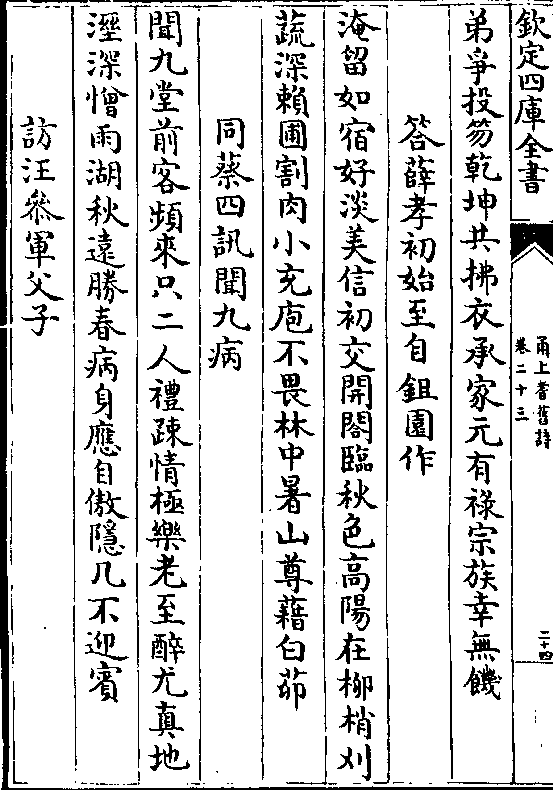 欽定四庫全書
甬上耆舊詩
卷二十三
二十四
弟爭投笏乾坤共拂衣承家元有祿宗族幸無饑
答薛孝初始至自鉏園作
淹留如宿好淡美信初交開閣臨秋色高陽在柳梢刈
蔬深賴圃割肉小充庖不畏林中暑山尊藉白茆
同蔡四訊聞九病
聞九堂前客頻來只二人禮疎情極樂老至醉尤真地
溼深憎雨湖秋遠勝春病身應自傲隱几不迎賓
訪汪叅軍父子